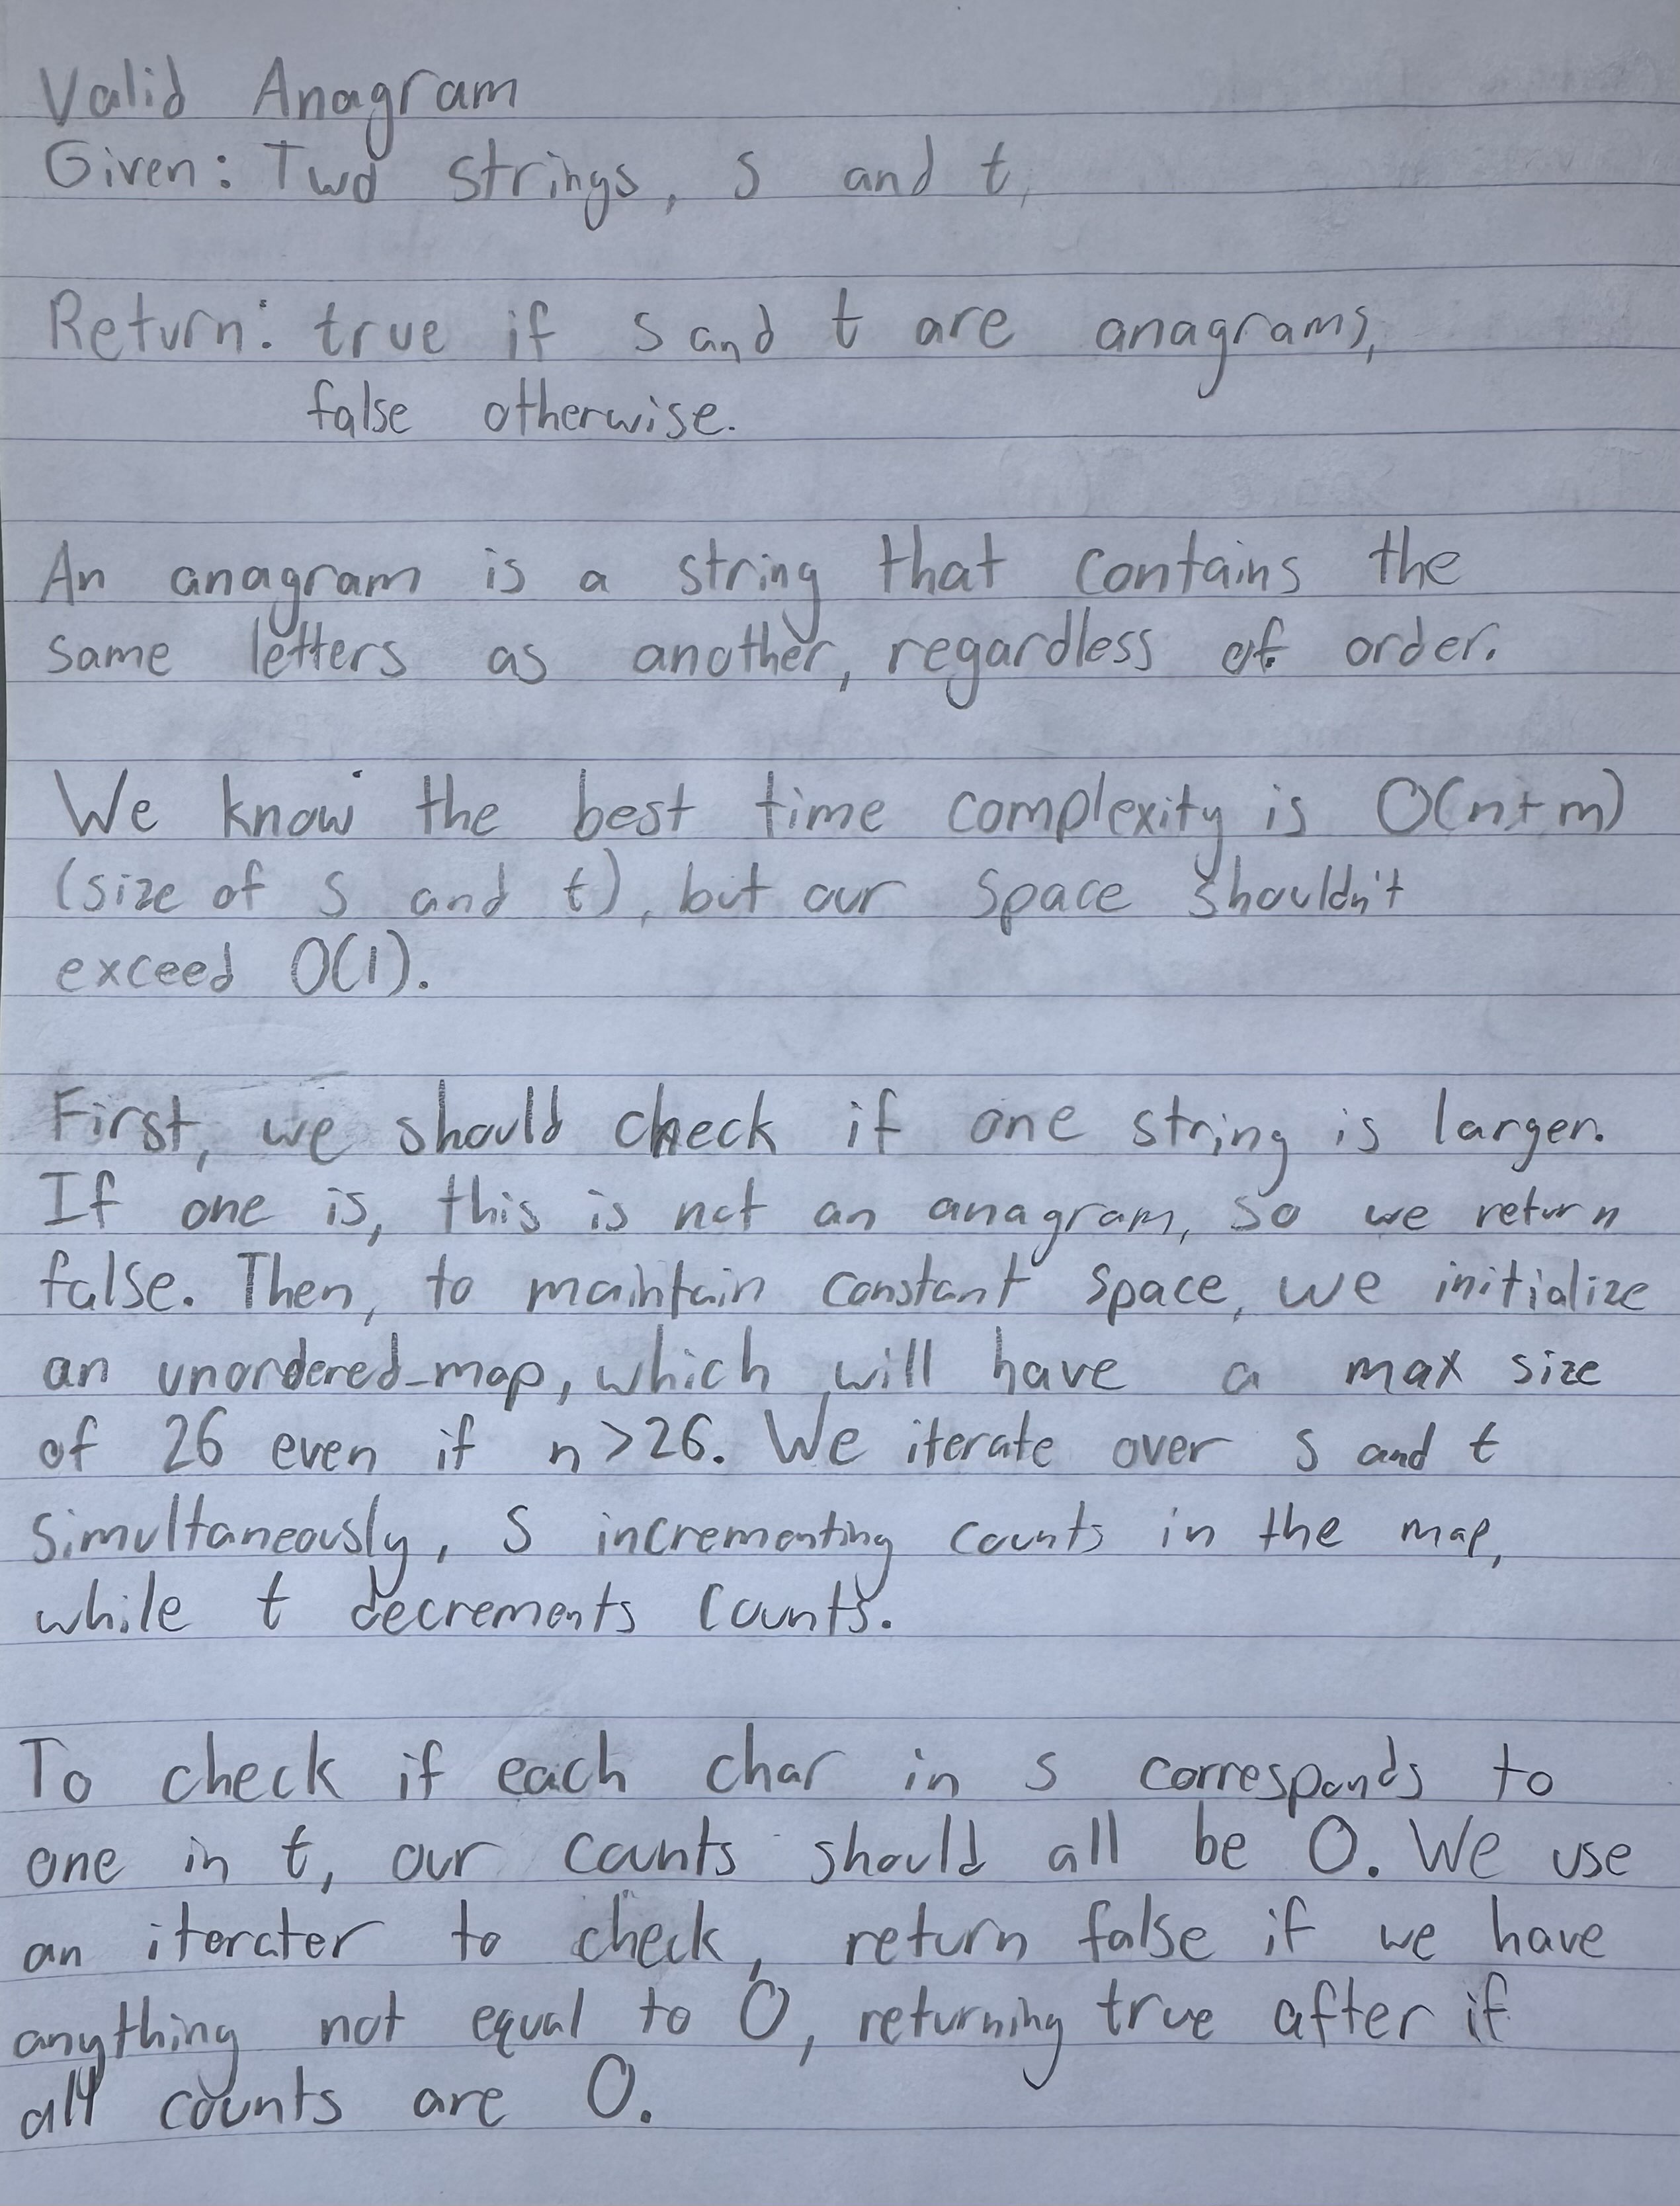 Valid Anagram
Given: Two strings, s and t,
Return: true if s and t are anagrams,
false otherwise.
An anagram is a string that contains the
same letters as another, regardless of order.
We know the best time complexity is O(n+m)
(size of s and t), but our space shouldn't
exceed O(1).
First, we should check if one string is larger.
If one is, this is not an anagram, so we return
false. Then, to maintain constant space, we initialize
an unordered_map, which will have a max size
of 26 even if n>26. We iterate over s and t
simultaneously, s incrementing counts in the map,
while t decrements counts.
To check if each char in s corresponds to
one in t, our counts should all be 0. We use
an iterater to check, return false if we have
anything not equal to 0, returning true after if
all counts are 0.